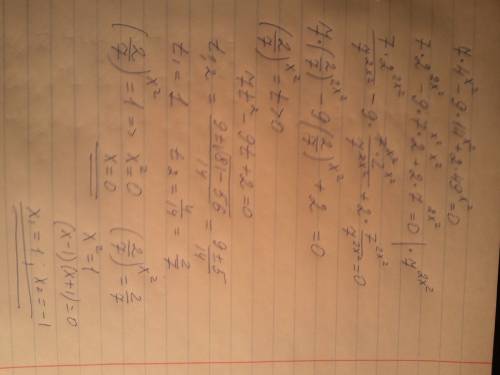 7·4^x² - 9·14^x² + 2·49^x² = 0
7·2^2x² - 9·7^x²·2^x² + 2·7^2x² = 0 | : 7^2x²
7·2^2x²/7^2x² - 9·7^x²·2^x²/7^2x² + 2·7^2x²/7^2x² = 0
7·(2/7)^2x² - 9(2/7)^x² + 2 = 0
(2/7)^x² = t > 0
7t² - 9t + 2 = 0
t₁,₂ = 9±√81-56/14 = 9±5/14
t₁ = 1 t₂ = 4/14 = 2/7
(2/7)^x² = 1 => x² = 0 (2/7)^x² = 2/7
x = 0 x² = 1
(x-1)(x+1) = 0
x₁ = 1, x₂ = -1